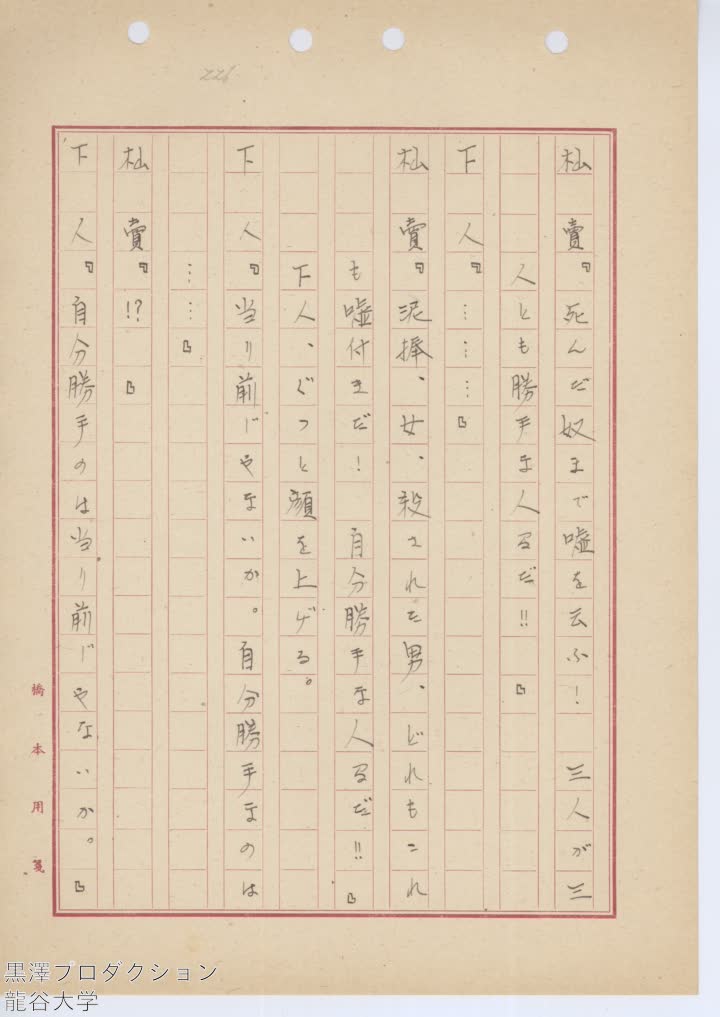 226
杣賣『死んだ奴まで嘘を云ふ！　三人が三
人とも勝手な人るだ!!　』
下人『………』
杣賣『泥捧、女、殺された男、どれもこれ
も嘘付きだ！　自分勝手な人るだ!!』
下人、ぐつと顔を上げる。
下人『当り前ぢやないか。自分勝手なのは
……』
杣賣『!?　』
下人『自分勝手のは当り前ぢやないか。』
橋本用箋
黒澤プロダクション
龍谷大学